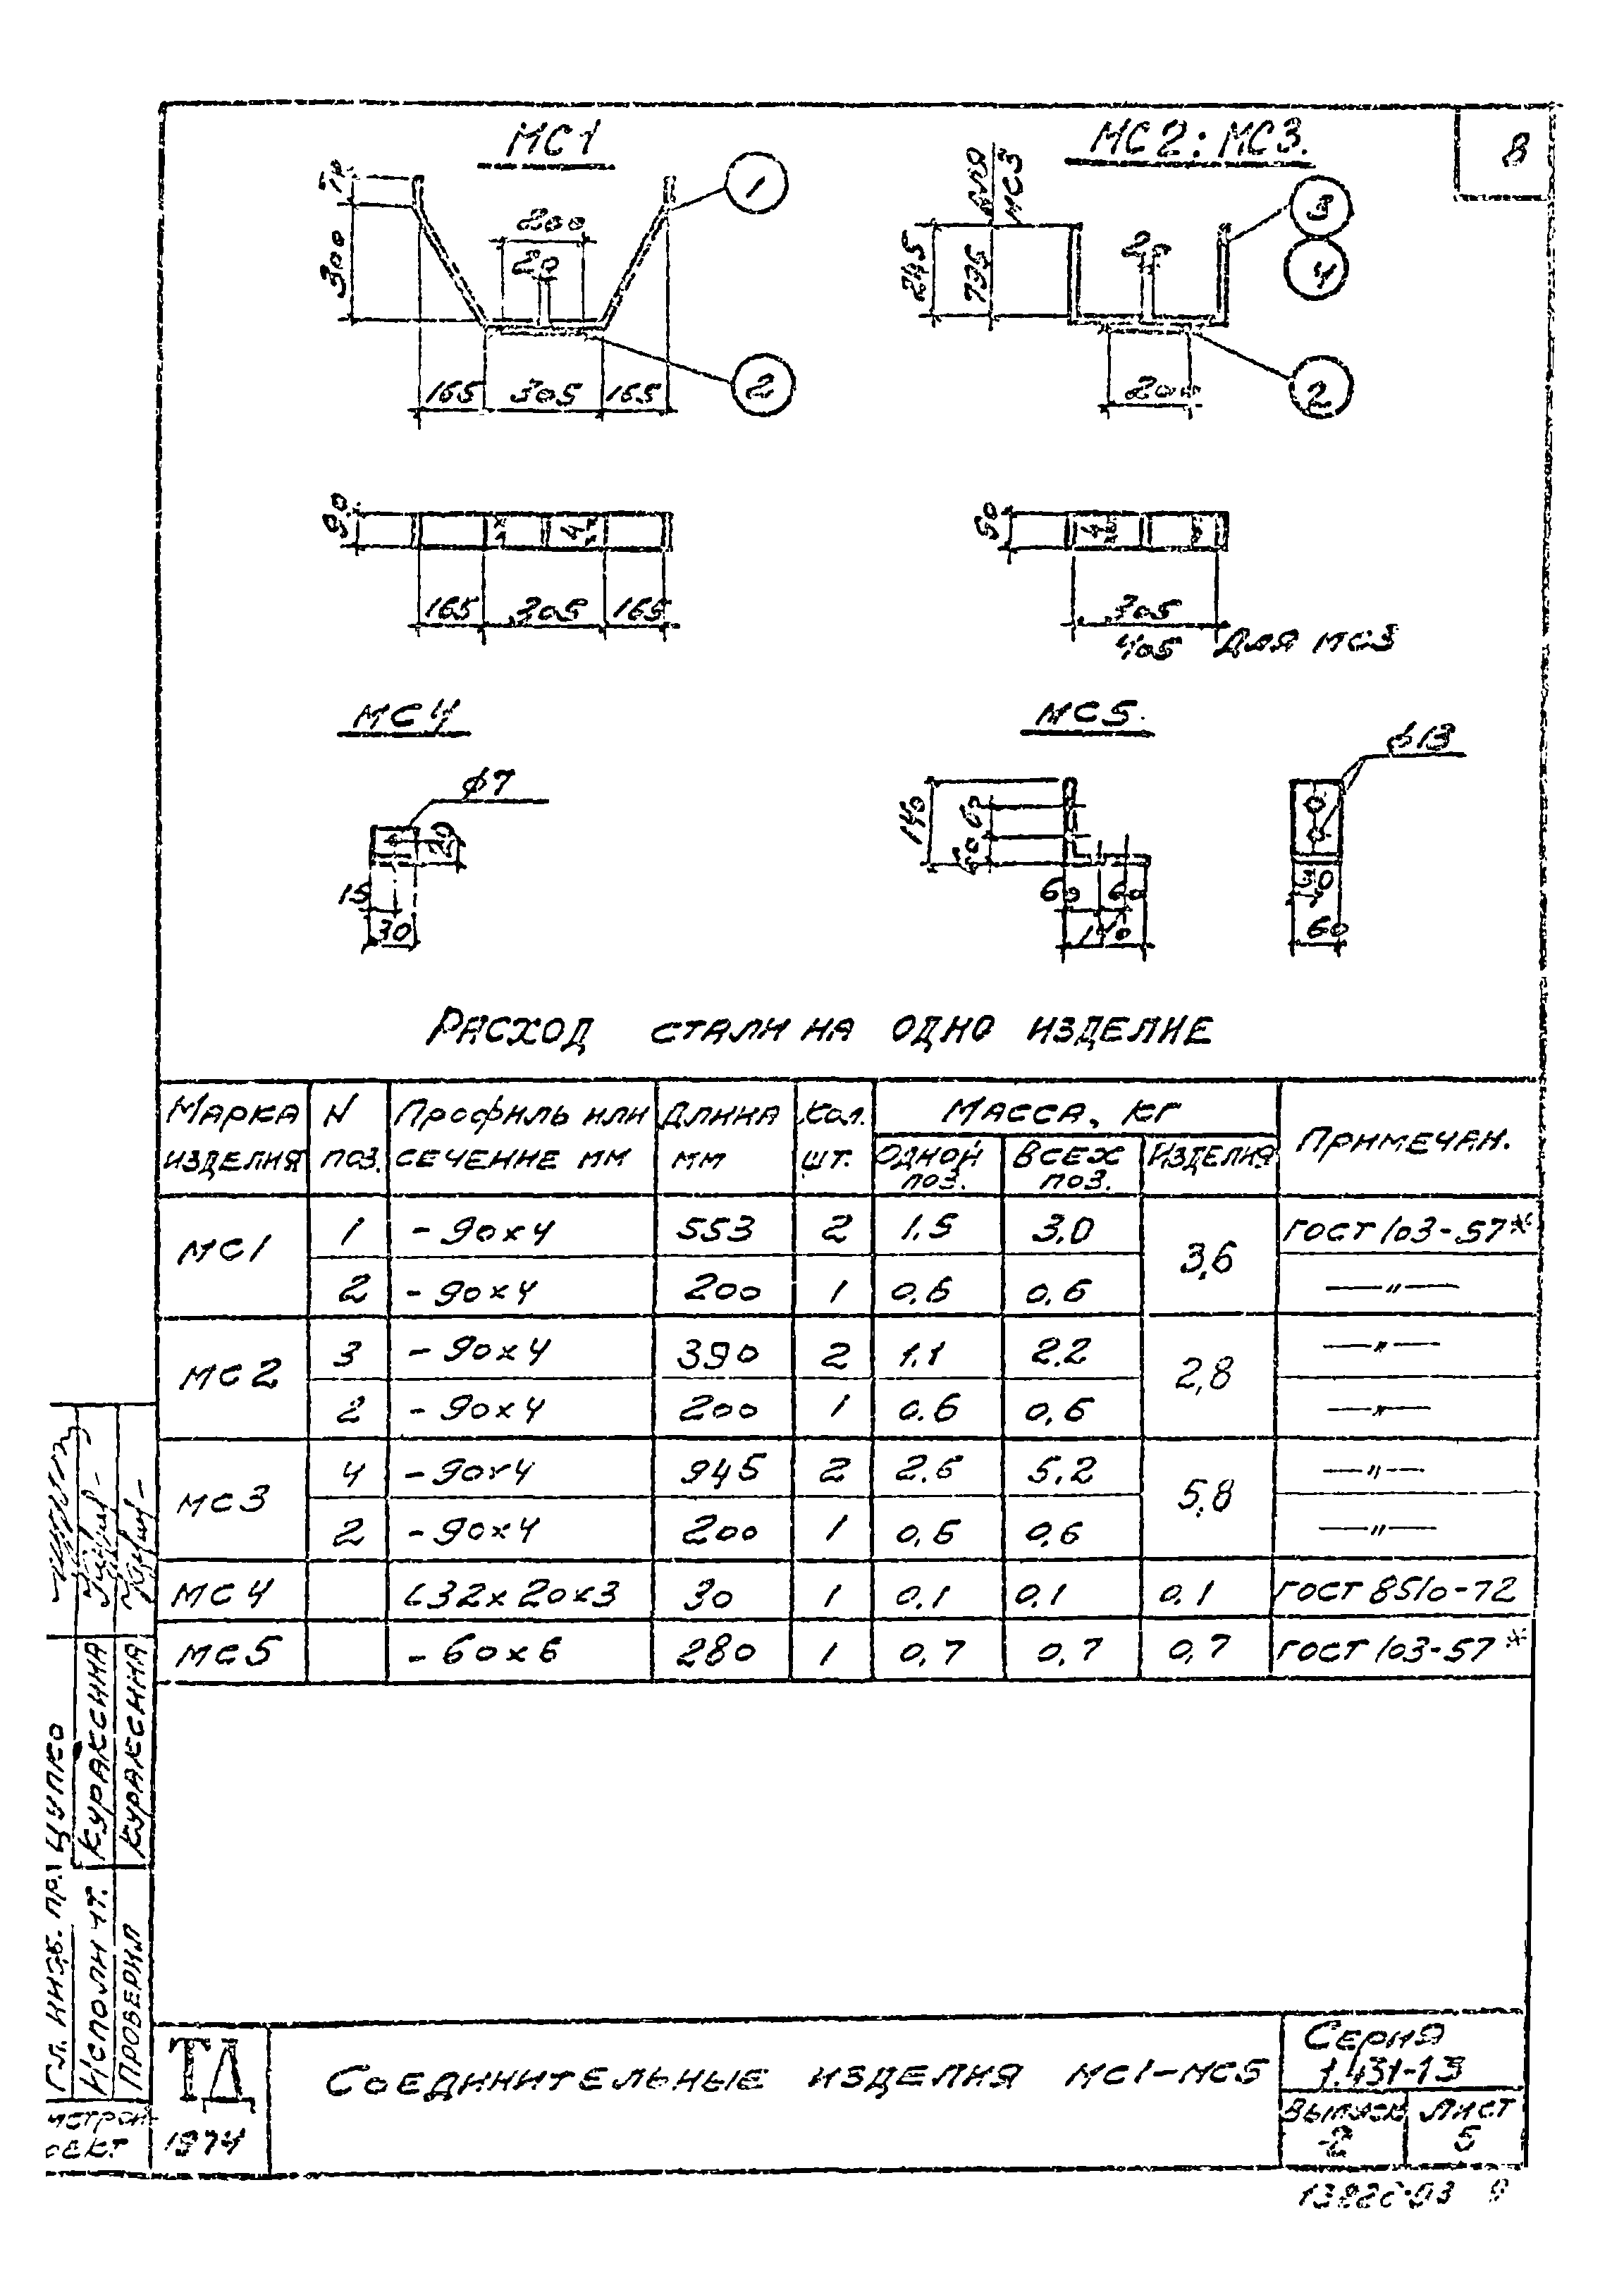 8
МС1
МС2; МС3.
1
2
300
200
20
165 305 165
для МС3
245
795
20
3
4
2
200
90
4
165 305 165
90
4
305
405 для МС3
МС4
ϕ7
20
15
30
МС5.
140
60
60 60
140
ϕ13
30
60
Расход стали на одно изделие
Марка изделия N поз. Профиль или сечение мм Длина мм Кол. шт. Масса, кг Примечан.
Одной поз. Всех поз. Изделия
МС1 1 -90х4 553 2 1.5 3.0 3,6 ГОСТ 103-57*
2 -90х4 200 1 0,6 0,6 —"—
МС2 3 -90х4 390 2 1.1 2.2 2,8 —"—
2 -90х4 200 1 0.6 0,6 —"—
МС3 4 -90х4 945 2 2.6 5.2 5,8 —"—
2 -90х4 200 1 0,6 0,6 —"—
МС4 L32х20х3 30 1 0,1 0,1 0,1 ГОСТ 8510-72
МС5 -60х6 280 1 0,7 0,7 0,7 ГОСТ 103-57*
Гл. инж. пр. Цупко
Исполн. ит. Кураксина
Проверил Кураксина
ТД
1974
Соединительные изделия МС1-МС5
Серия
1.431-13
Выпуск Лист
2 5
9